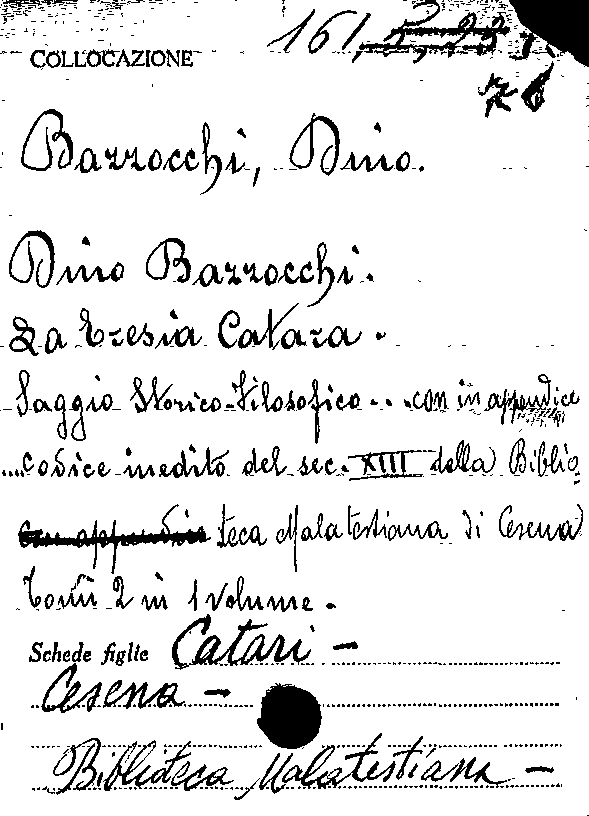 COLLOCAZIONE
161,
76
Bazzocchi, Dino.
Dino Bazzocchi.
La Eresia Catara.
Saggio Storico-Filosofico.. con in appendice
codice inedito del sec. XIII della Biblio
con appendice teca Malatestiana di Cesena
Tomi 2 in 1 volume.
Schede figlie Catari -
Cesena -
Biblioteca Malatestiana -